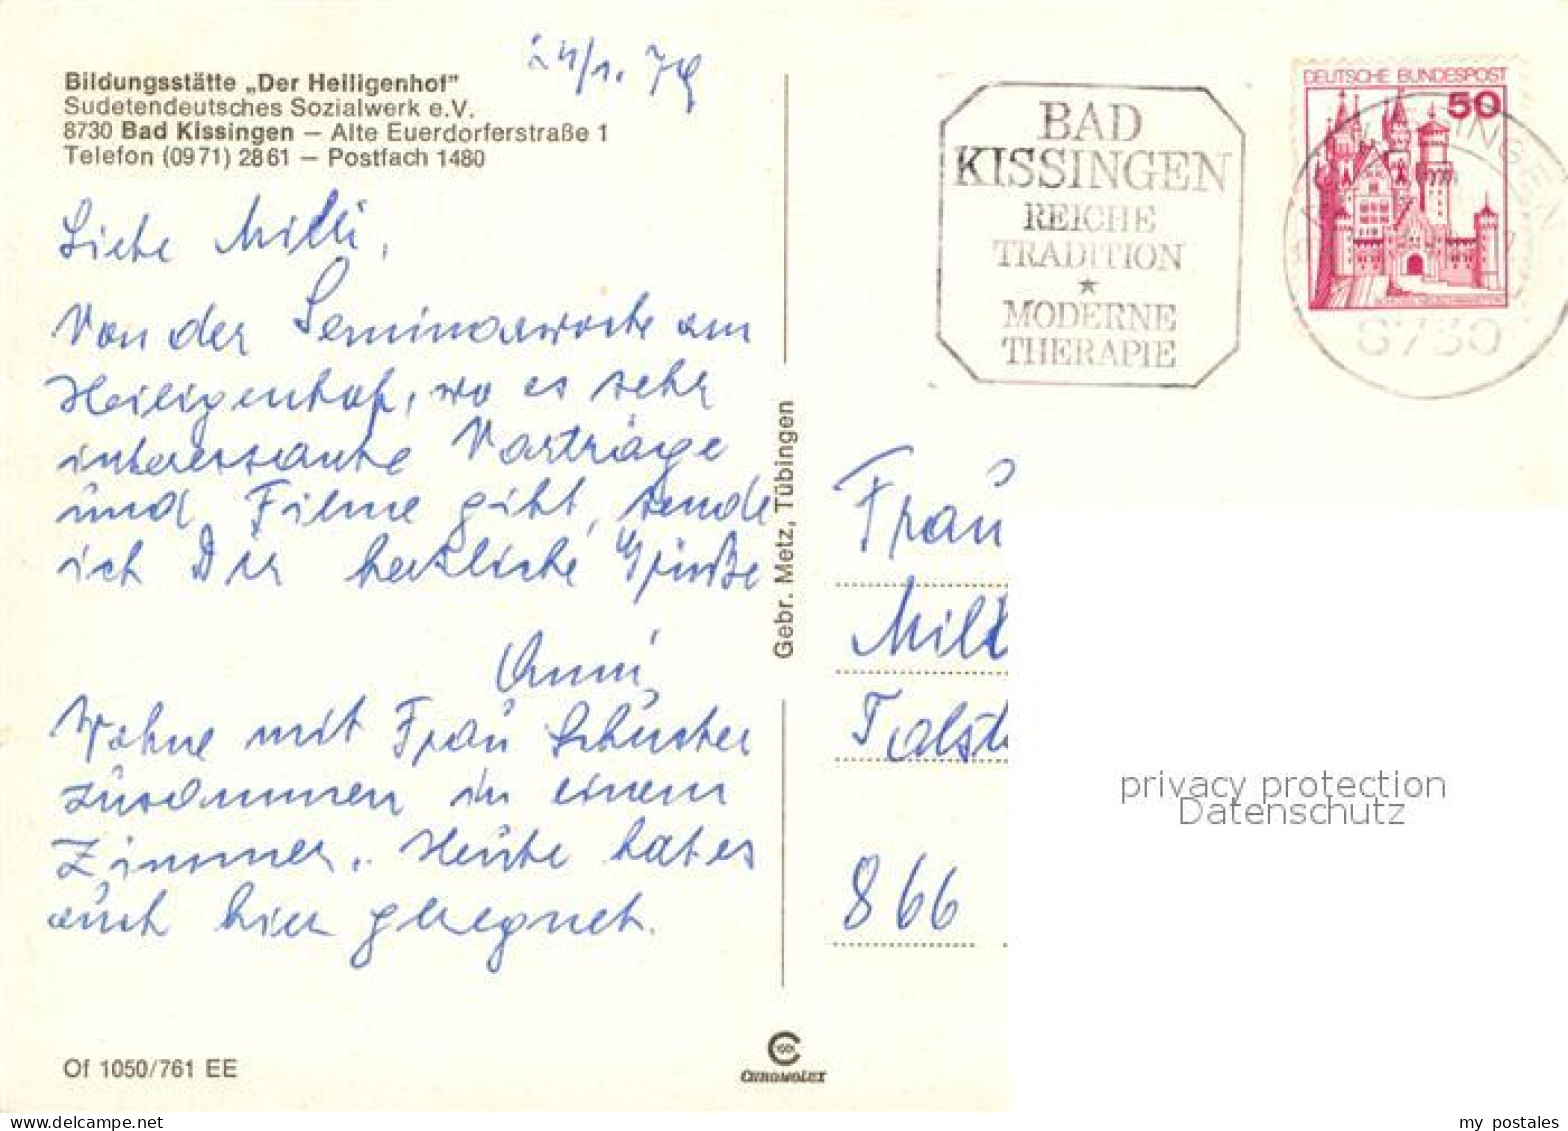 24/1. 79
Bildungsstätte „Der Heiligenhof"
Sudetendeutsches Sozialwerk e.V.
8730 Bad Kissingen — Alte Euerdorferstraße 1
Telefon (0971) 2861 — Postfach 1480
Liebe Milli,
Von der Seminarwoche am
Heiligenhof, wo es sehr
interessante Vorträge
und Filme gibt, sende
ich Dir herzliche Grüße
Anni
Wohne mit Frau Schuster
zusammen in einem
Zimmer. Heute hat es
auch hier geregnet.
Of 1050/761 EE
Gebr. Metz, Tübingen
CHROMOLUX
BAD
KISSINGEN
REICHE
TRADITION
★
MODERNE
THERAPIE
DEUTSCHE BUNDESPOST
50
8730
Frau
Mill
Talst
866
privacy protection
Datenschutz
my postales